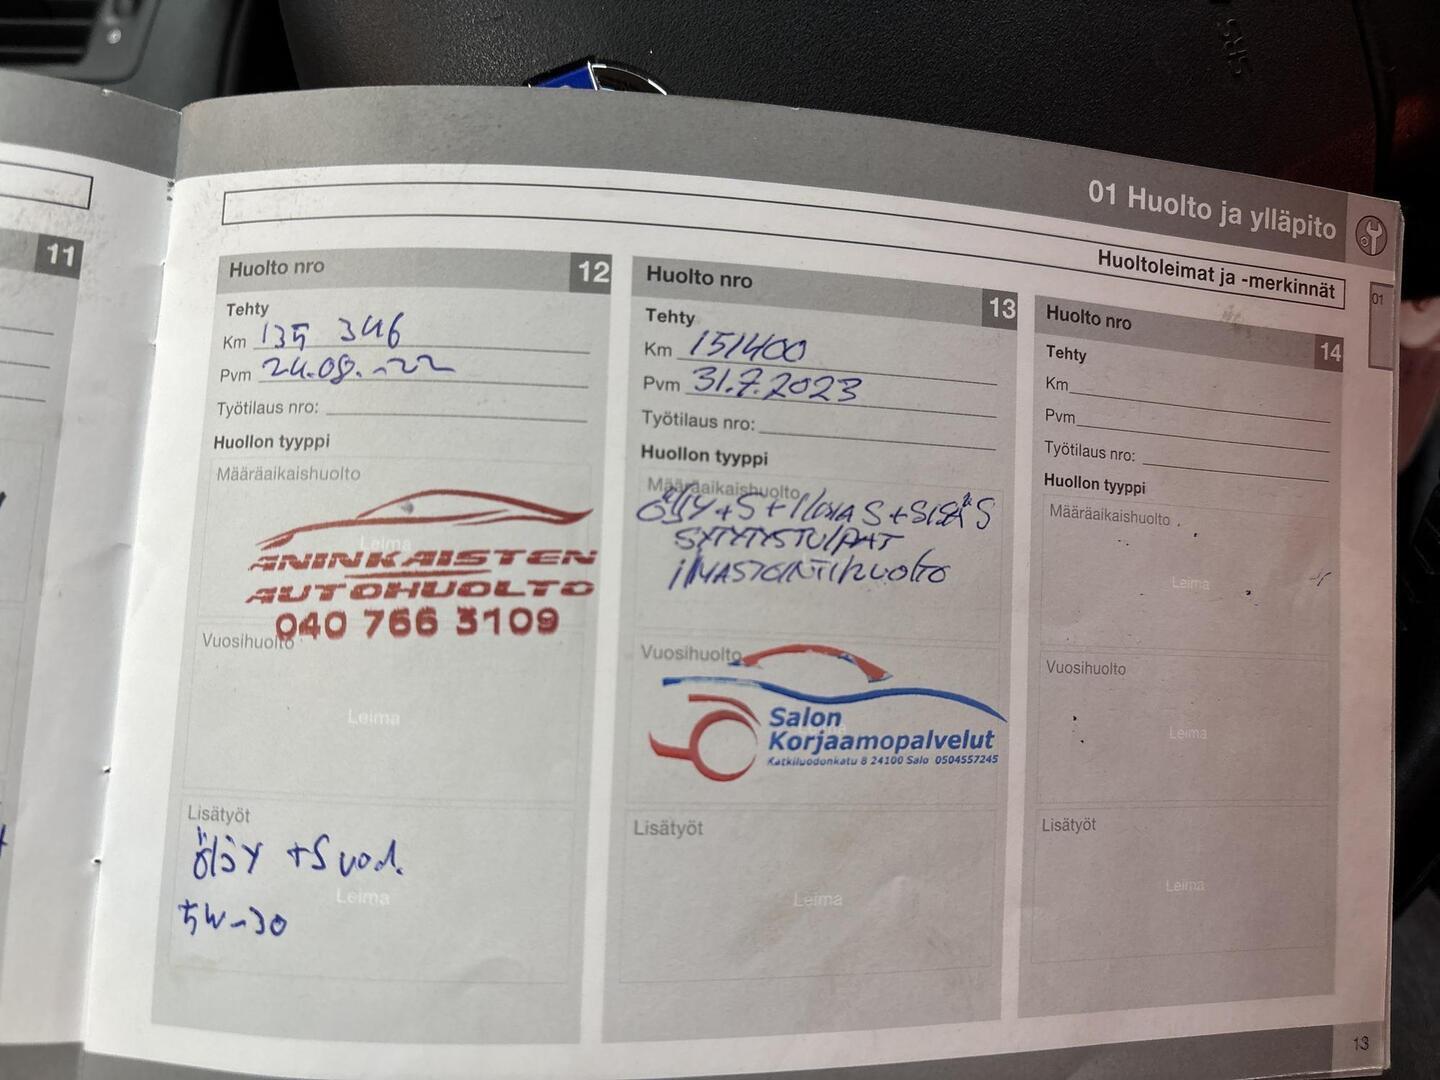 SRS
01 Huolto ja ylläpito
Huoltoleimat ja -merkinnät
01
11
Huolto nro 12
Tehty
Km 135 346
Pvm 24.08.-22
Työtilaus nro:
Huollon tyyppi
Määräaikaishuolto
Leima
ANINKAISTEN
AUTOHUOLTO
040 766 3109
Vuosihuolto
Leima
Lisätyöt
öljy +S vod.
Leima
5W-30
Huolto nro 13
Tehty
Km 151400
Pvm 31.7.2023
Työtilaus nro:
Huollon tyyppi
Määräaikaishuolto
ÖLJY+S+ILMA S+SISÄ S
SYTYTYSTULPAT
ILMASTOINTIHUOLTO
Vuosihuolto
Salon
Korjaamopalvelut
Katkiluodonkatu 8 24100 Salo 0504557245
Lisätyöt
Leima
Huolto nro 14
Tehty
Km
Pvm
Työtilaus nro:
Huollon tyyppi
Määräaikaishuolto
Leima
Vuosihuolto
Leima
Lisätyöt
Leima
13